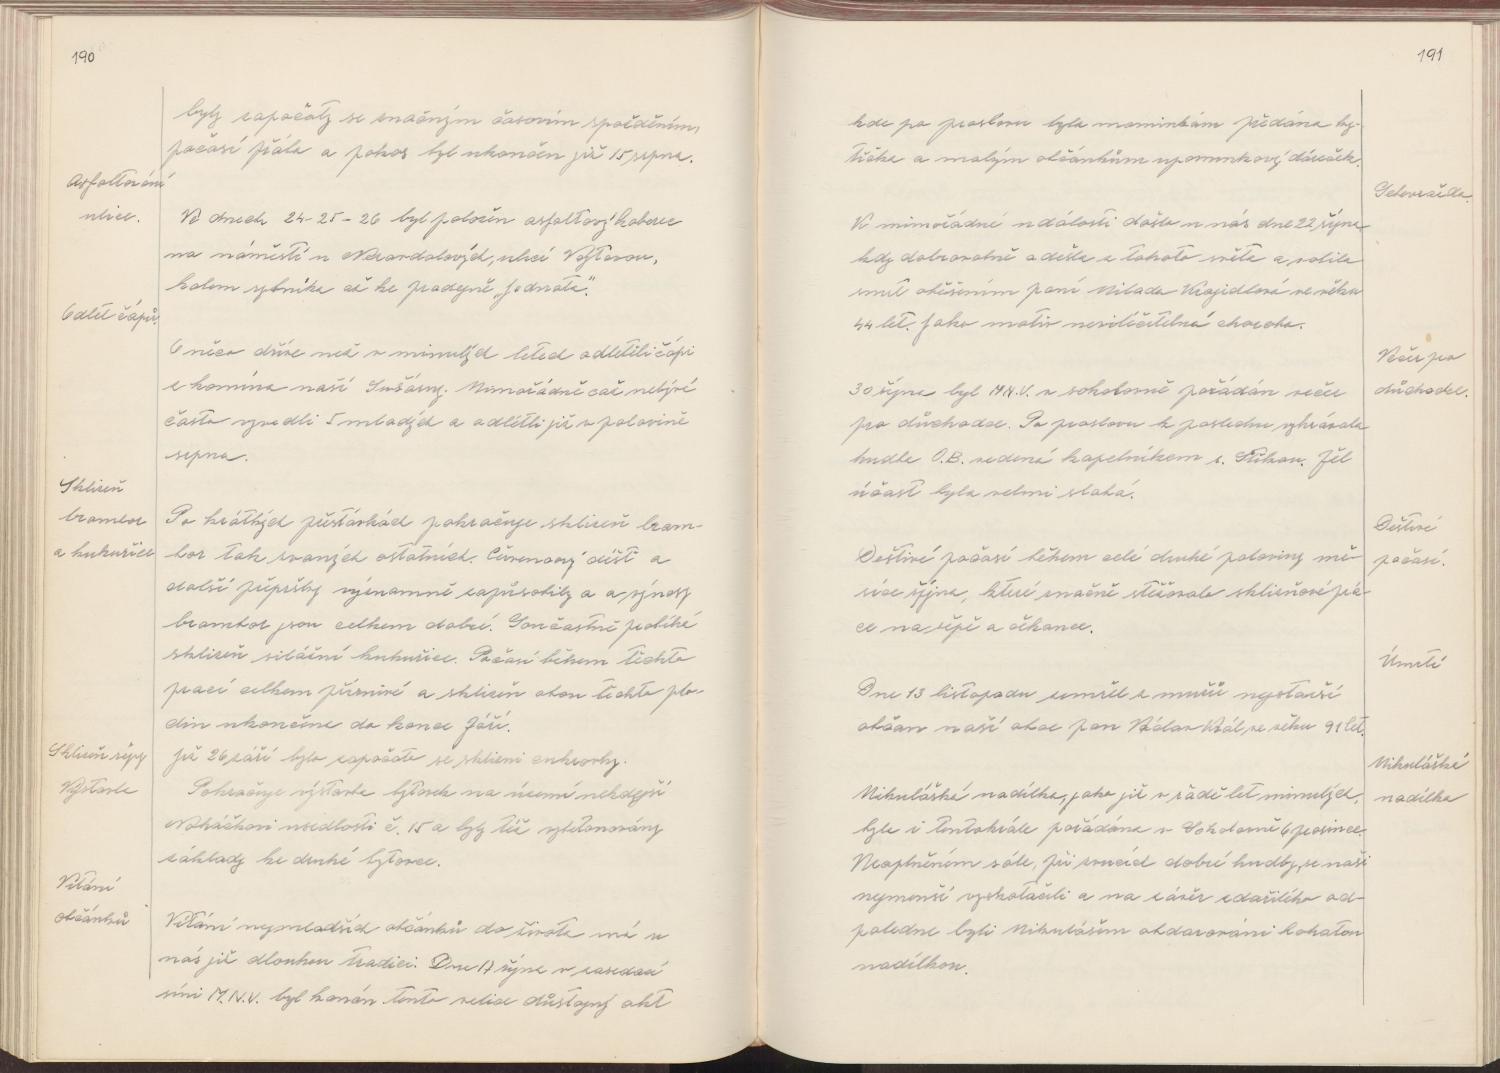 190
byly započaty se značným časovým zpožděním,
počasí přálo a pokos byl ukončen již 15 srpna.
Asfaltování
ulice.
Ve dnech 24-25-26 byl položen asfaltový koberec
na náměstí u Nezavdalových, ulicí Výtopnou,
kolem rybníka až ke prodejně „Jednota".
Odlet čápů.
O něco dříve než v minulých letech odletěli čápi
z komína naší Sušárny. Mimořádně což nebývá
často vyvedli 5 mladých a odlétli již v polovině
srpna.
Sklizeň
brambor
a kukuřice
Po krátkých přestávkách pokračuje sklizeň bram-
bor tak zvaných ostatních. Červnový déšť a
další přepršky významně zapůsobily a a výnosy
brambor jsou celkem dobré. Součastně probíhá
sklizeň silážní kukuřice. Počasí během těchto
prací celkem příznivé a sklizeň obou těchto plo-
din ukončena do konce Září.
Sklizeň řepy
již 26 září bylo započato se sklizní cukrovky.
Výstavba
Pokračuje výstavba bytovek na území někdejší
Nováčkovi usedlosti č. 15 a byly též vybetonovány
základy ke druhé bytovce.
Vítání
občánků
Vítání nejmladších občánků do života má u
nás již dlouhou tradici. Dne 17 října v zasedací
síni M.N.V. byl konán tento velice důstojný akt
191
kde po proslovu byla maminkám předána ky-
tička a malým občánkům upomínkový dáreček.
Sebevražda.
K mimořádné události došlo u nás dne 22 října
kdy dobrovolně odešla z tohoto světa a zvolila
smrt oběšením paní Milada Krajidlová ve věku
44 let. Jako motiv nevyléčitelná choroba.
Večer pro
důchodce.
30 října byl M.N.V. v sokolovně pořádán večer
pro důchodce. Po proslovu k poslechu vyhrávala
hudba O.B. vedená kapelníkem s. Stíkou. Žel
účast byla velmi slabá.
Deštivé
počasí.
Deštivé počasí během celé druhé poloviny mě-
síce října, které značně stěžovalo sklizňové prá-
ce na řepě a čekance.
Úmrtí
Dne 13 listopadu zemřel z mužů nejstarší
občan naší obce pan Václav Král ve věku 91 let.
Mikulášská
nadílka
Mikulášská nadílka, jako již v řadě let minulých,
byla i tentokráte pořádána v Sokolovně 6 prosince.
Naplněném sále, při zvucích dobré hudby, se naši
nejmenší vyskotačili a na závěr zdařilého od-
poledne byli Mikulášem obdarováni bohatou
nadílkou.